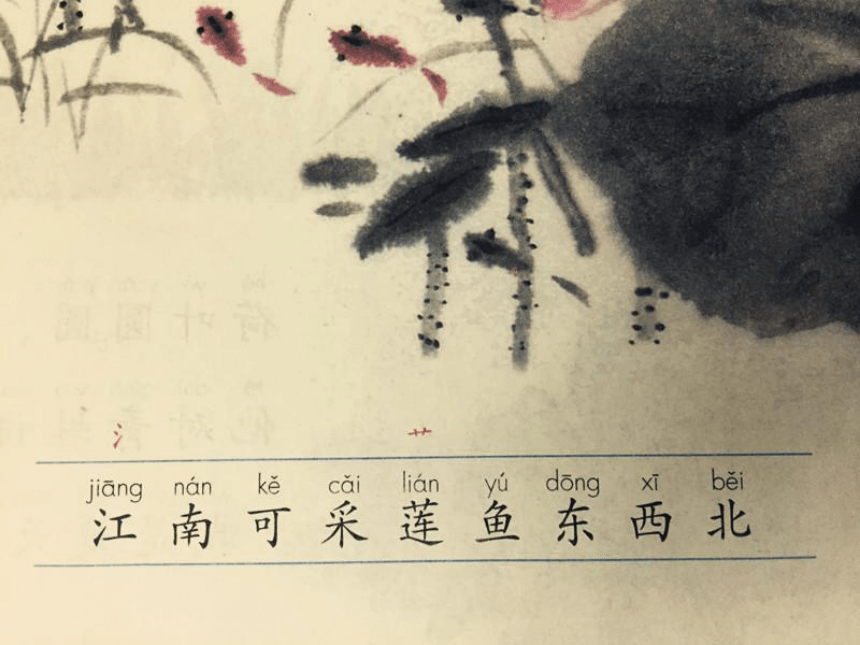 氵 艹
jiāng nán kě cǎi lián yú dōng xī běi
江 南 可 采 莲 鱼 东 西 北